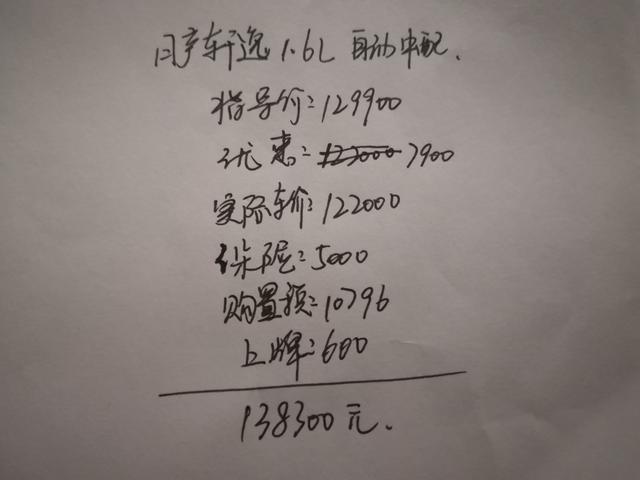 日产轩逸1.6L 自动中配.
指导价:129900
优惠:123000 7900
实际车价:122000
保险:5000
购置税:10796
上牌:600
138300元.